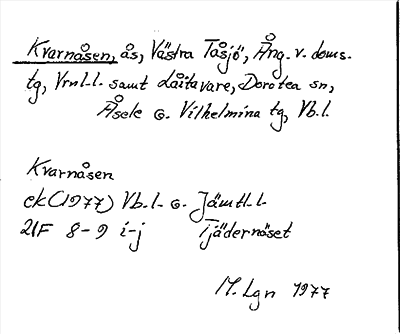 Kvarnåsen, ås, Västra Tåsjö, Ång. v. doms.
tg, Vrnl.l. samt Låitavare, Dorotea sn,
Åsele o. Vilhelmina tg, Vb.l.
Kvarnåsen
ek (1977) Vb.l. o. Jämtl.l.
21F 8-9 i-j Tjädernäset
M. Lgn 1977